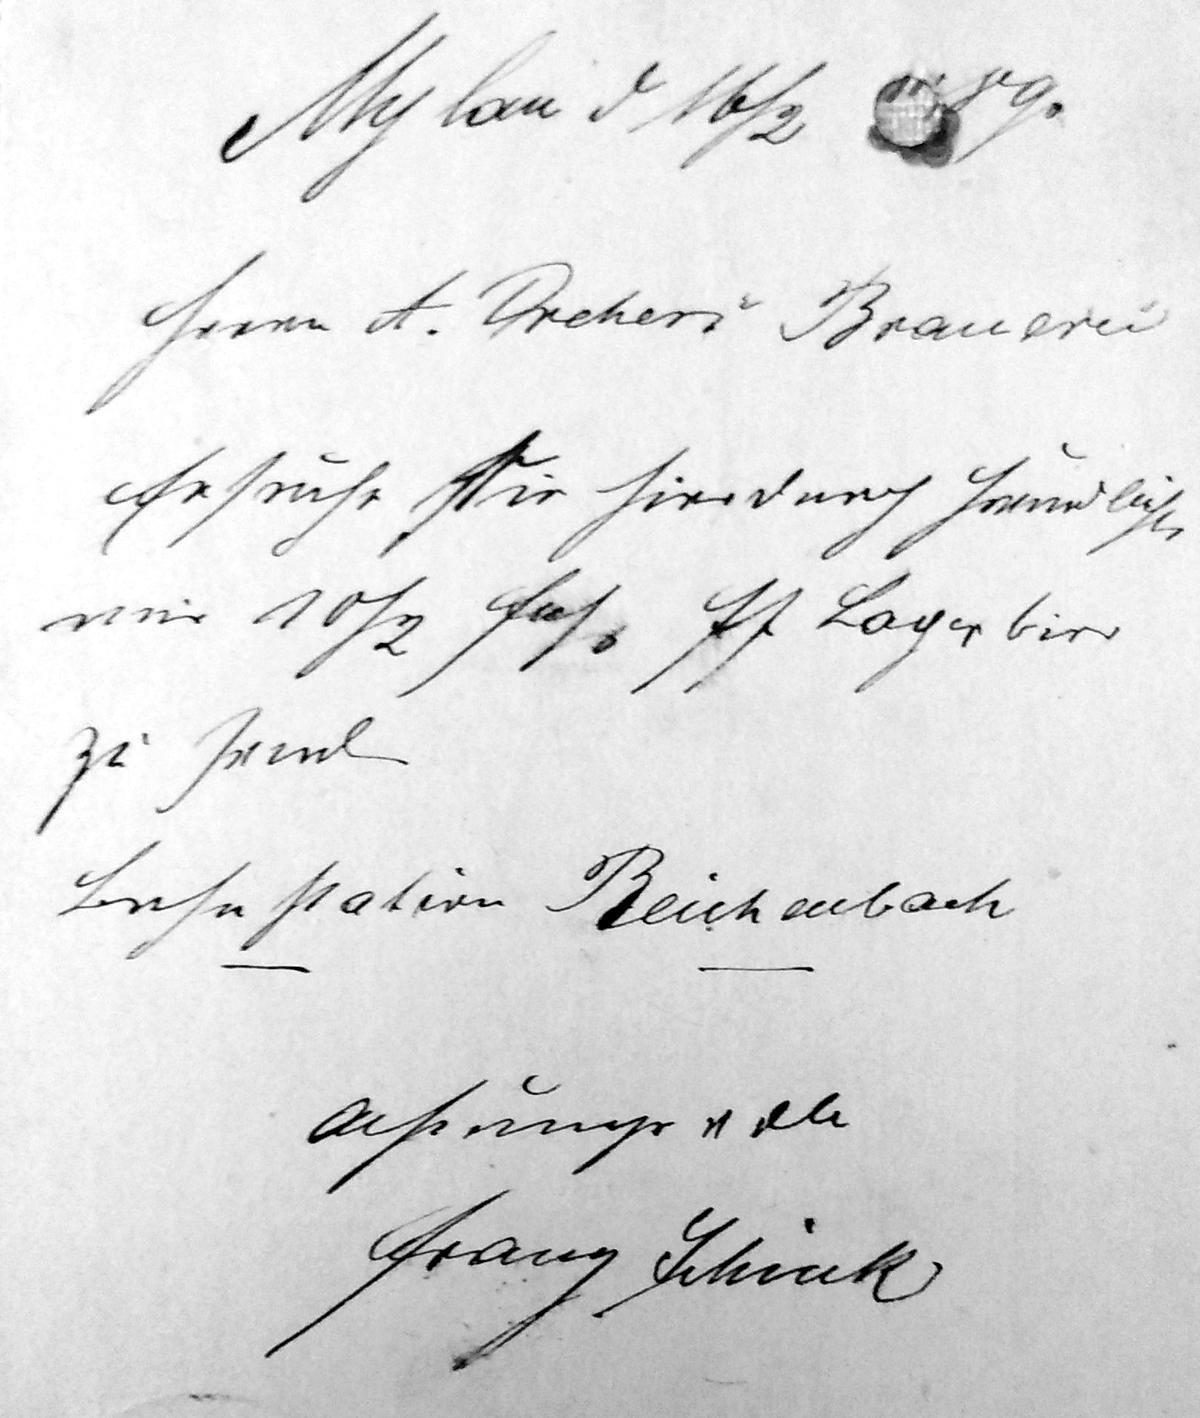 Mylau d 16/2 89.
Herrn A. Drehers Brauerei
Ersuche Sie hierdurch freundlichst
mir 10/2 Faß ff Lagerbier
zu send
Bahnstation Reichenbach
Achtungsvoll
Franz Schink